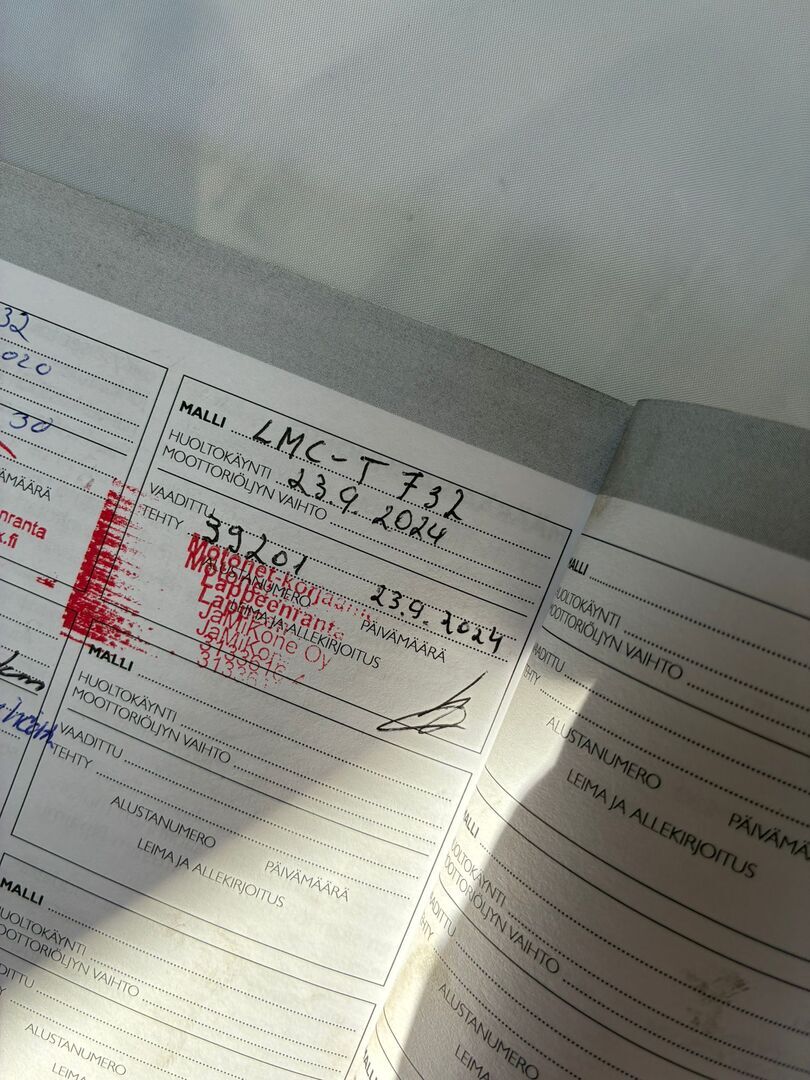 32
020
30
ÄMÄÄRÄ
enranta
k.fi
km
MALLI LMC-T 732
HUOLTOKÄYNTI
MOOTTORIÖLJYN VAIHTO 23.9. 2024
VAADITTU
TEHTY 39201
Motonet-korjaamo
ALUSTANUMERO
PÄIVÄMÄÄRÄ 23.9.2024
Lappeenranta
LEIMA JA ALLEKIRJOITUS
JaMiKone Oy
MALLI
HUOLTOKÄYNTI
MOOTTORIÖLJYN VAIHTO
VAADITTU
TEHTY
ALUSTANUMERO
PÄIVÄMÄÄRÄ
LEIMA JA ALLEKIRJOITUS
MALLI
HUOLTOKÄYNTI
MOOTTORIÖLJYN VAIHTO
DITTU
ALUSTANUMERO
ALLI
UOLTOKÄYNTI
OOTTORIÖLJYN VAIHTO
AADITTU
EHTY
ALUSTANUMERO
PÄIVÄMÄÄ
LEIMA JA ALLEKIRJOITUS
ALLI
UOLTOKÄYNTI
OOTTORIÖLJYN VAIHTO
ADITTU
HTY
ALUSTANUMERO
LEIMA
MALLI